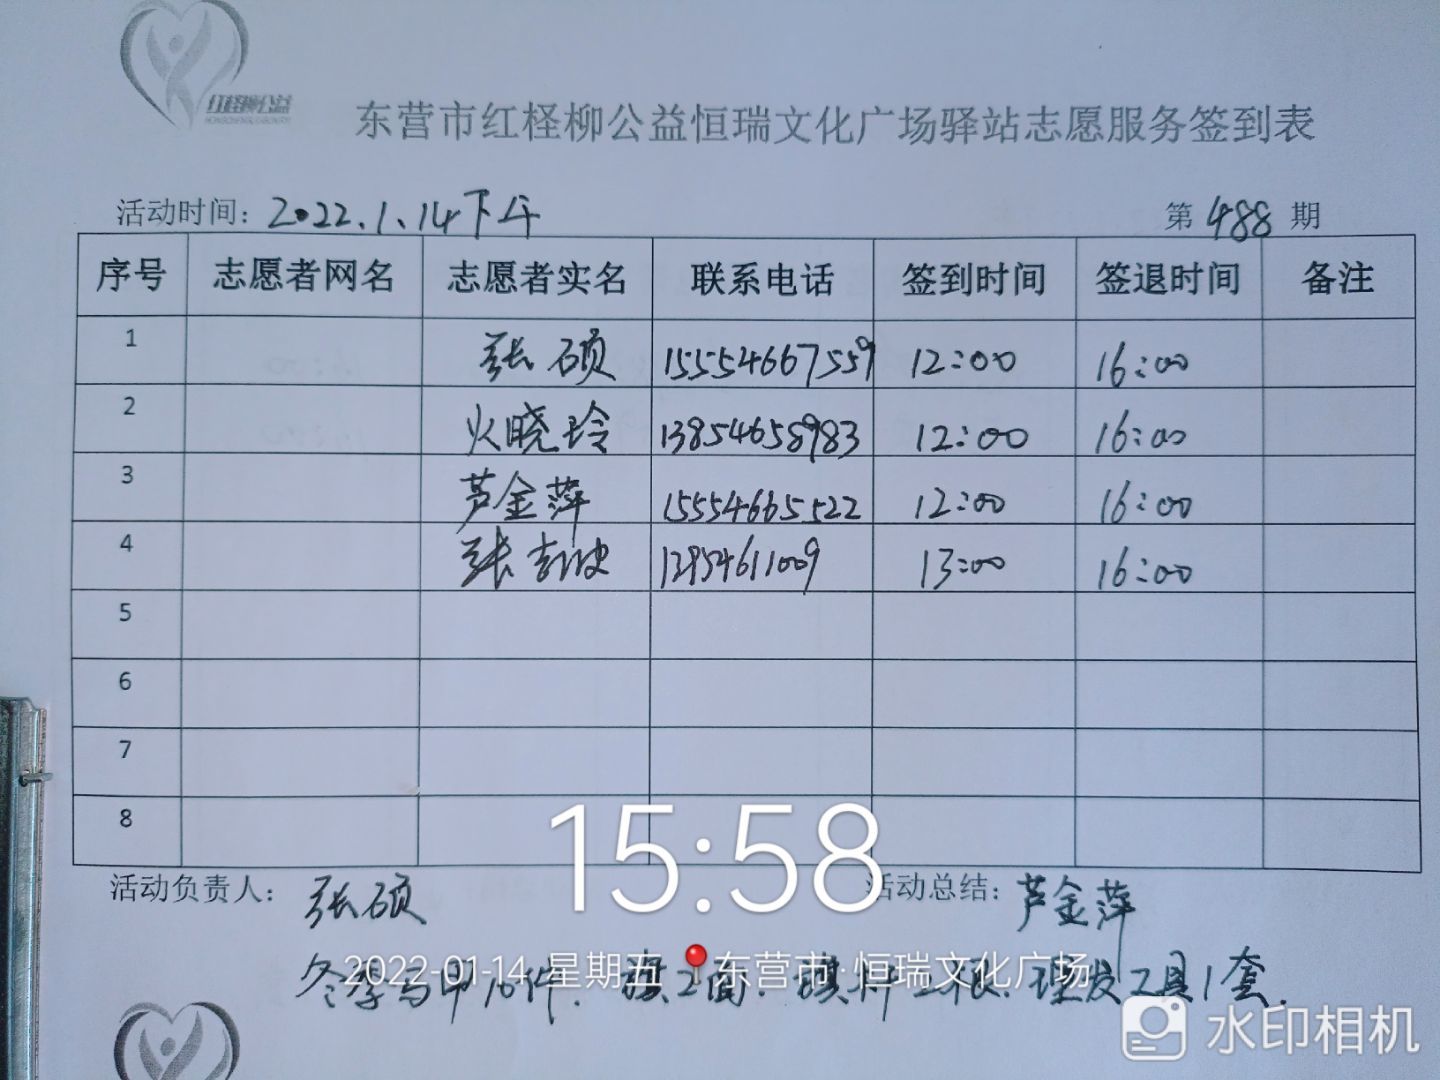 红柽柳公益
东营市红柽柳公益恒瑞文化广场驿站志愿服务签到表
活动时间：2022.1.14下午 第488期
序号 志愿者网名 志愿者实名 联系电话 签到时间 签退时间 备注
1 张硕 15554667559 12:00 16:00
2 火晓玲 13854658983 12:00 16:00
3 芦金萍 15554665522 12:00 16:00
4 张 13:00 16:00
5
6
7
8
15:58
活动负责人：张硕 活动总结：芦金萍
2022-01-14 星期五 东营市·恒瑞文化广场
冬季马甲10件. 旗2面. 旗杆2根. 理发工具1套.
水印相机